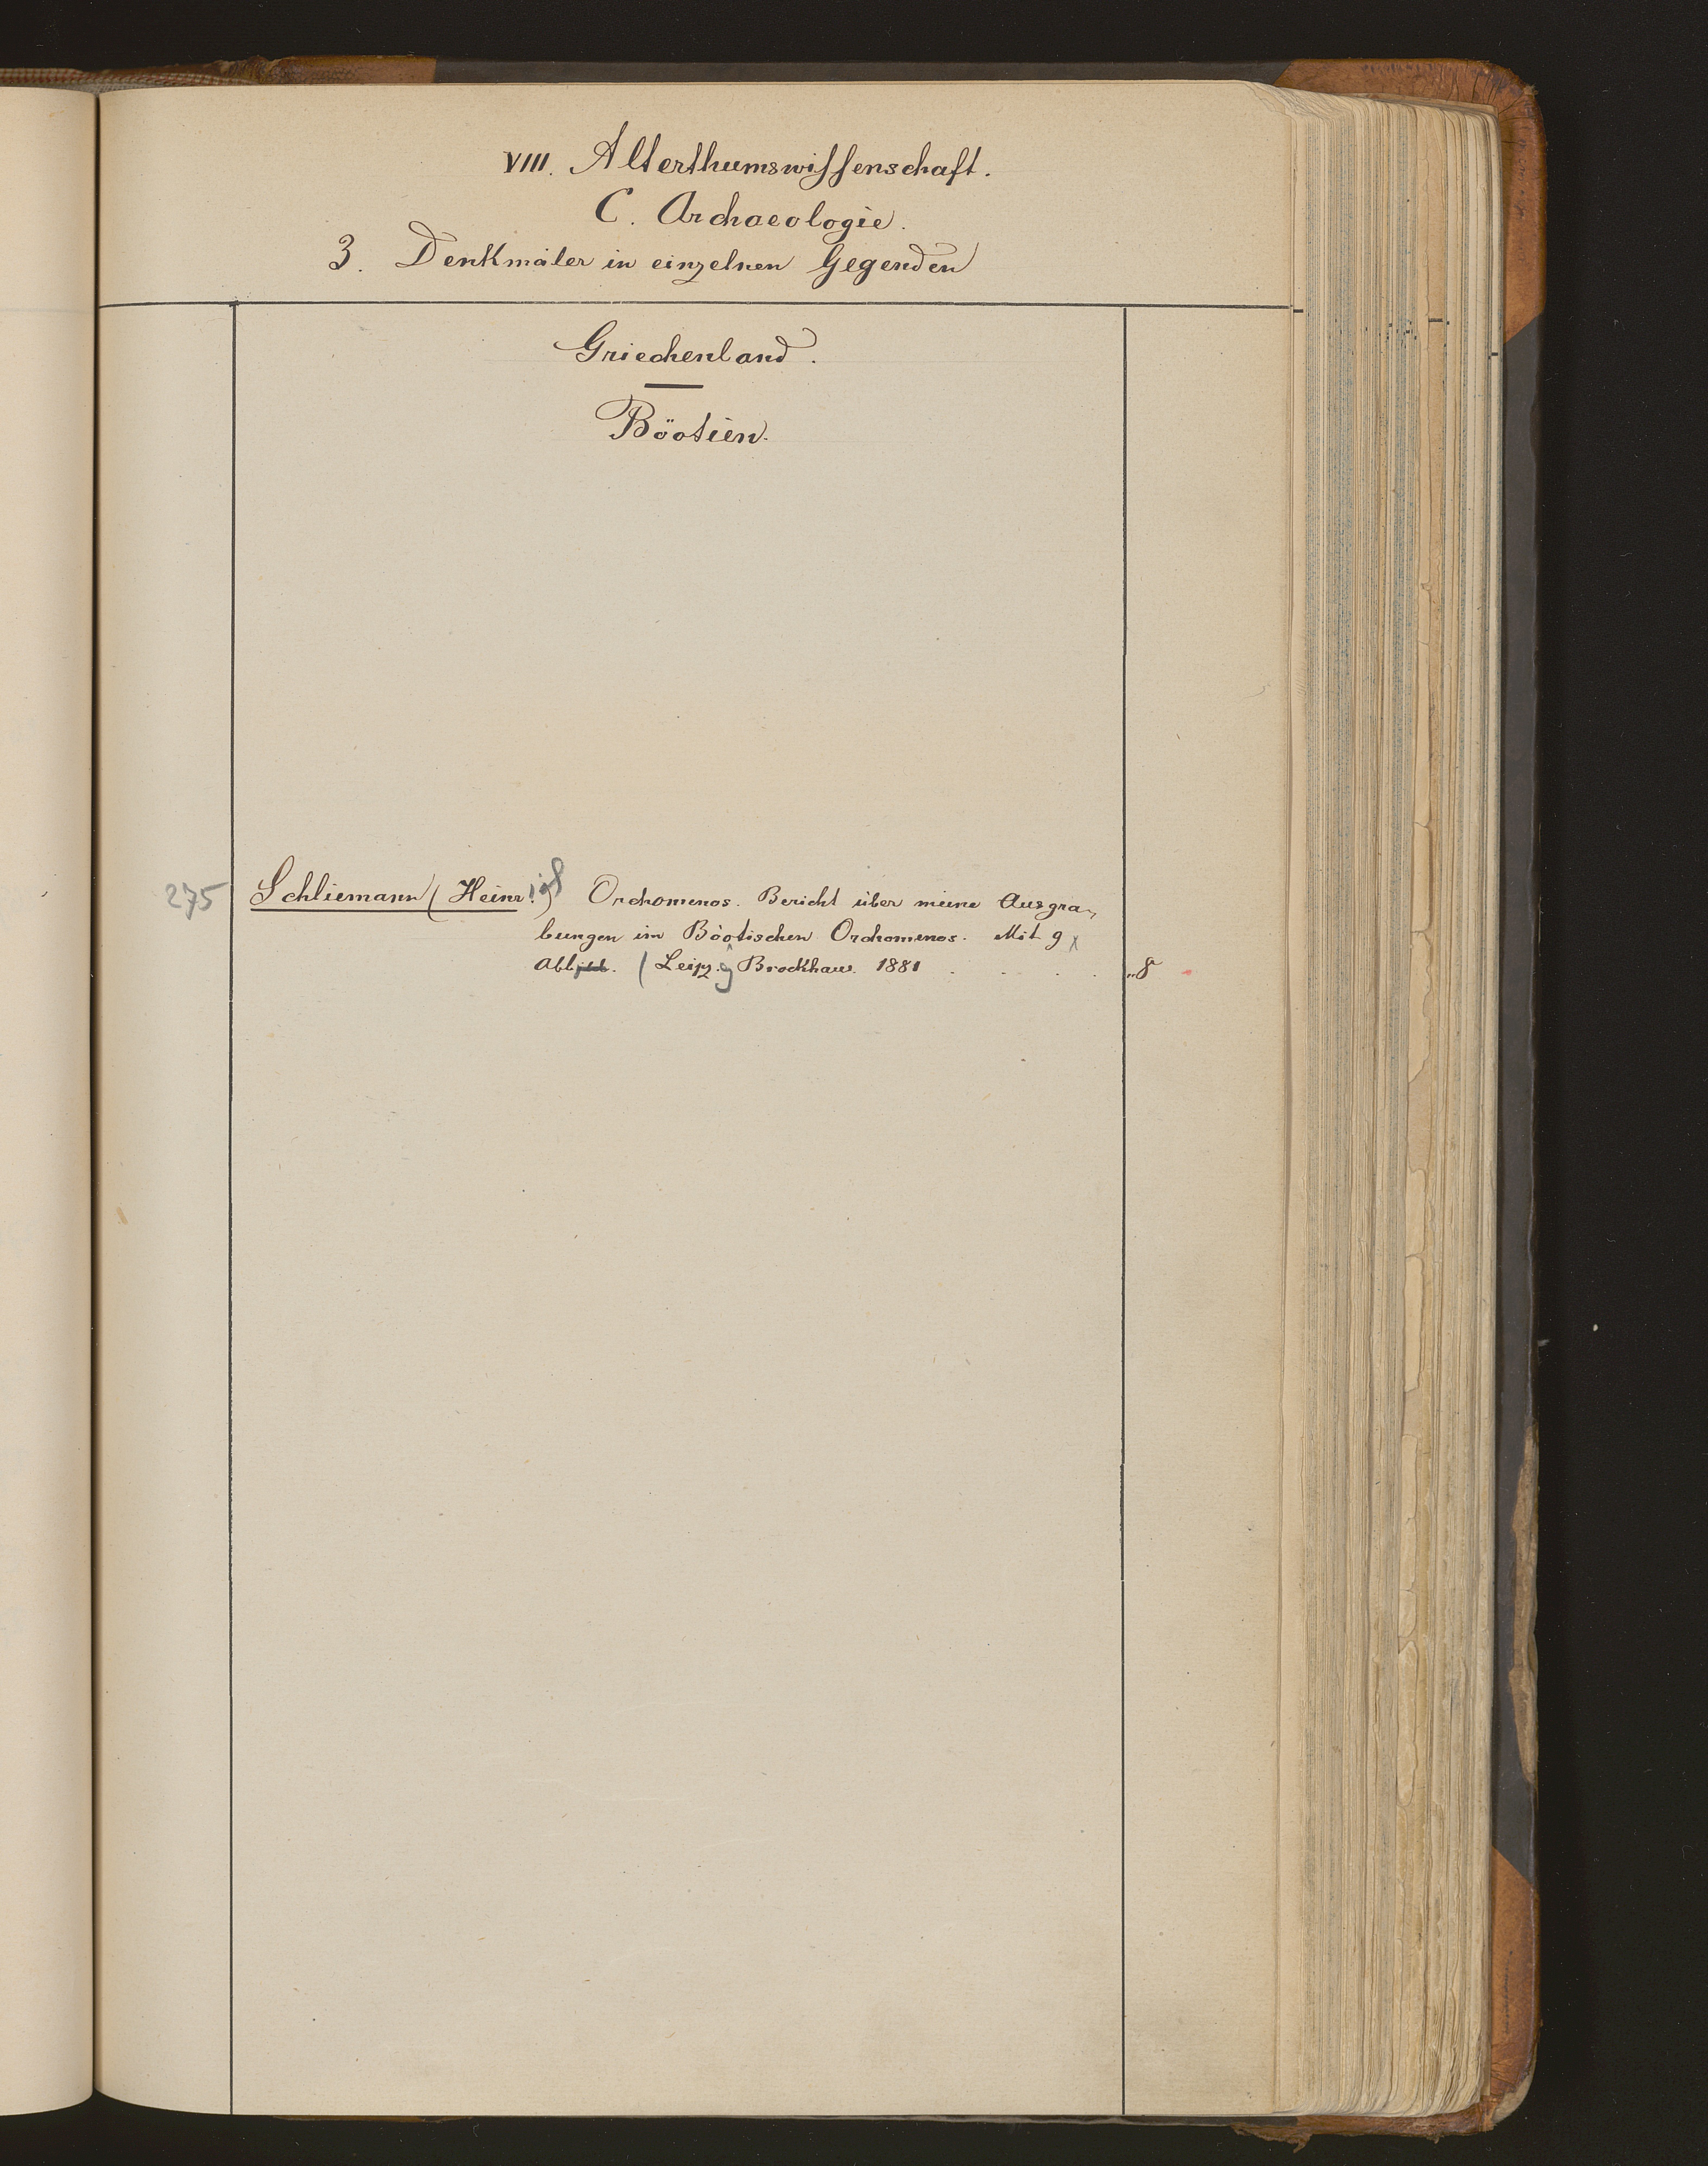 VIII. Alterthumswissenschaft.
C. Archaeologie.
3. Denkmäler in einzelnen Gegenden
Griechenland.
Böotien.
275 Schliemann (Heinrich) Orchomenos. Bericht über meine Ausgra-
bungen im Böotischen Orchomenos. Mit 9
Abbild. (Leipzg Brockhaus. 1881 . . . . 8